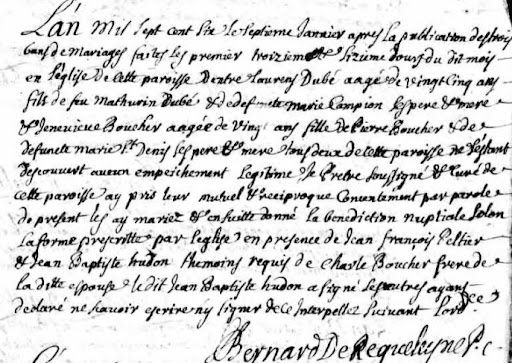 L'an Mil Sept cent Six le Septieme Janvier apres la publication des trois
bans de Mariages faites les premier troizieme et sizieme Jours du dit mois
en l'eglise De Cette paroisse Dentre Laurens Dubé aagé de vingt Cinq ans
fils de feu Mathurin Dubé & de defunte marie Campion ses pere & mere
& Jenevieve Boucher aagée de Vingt ans fille De Pierre Boucher & de
defuncte marie St. Denis ses pere & mere tous deux de cette paroisse ne s'estant
descouvert aucun empeichement Legitime Je Pretre Soussigné & Curé de
cette paroisse ay pris leur mutuel & reciproque Consentement par parole
de present les ay mariez & ensuitte donné la benediction nuptiale Selon
La forme prescritte par l'eglise en presence de Jean François Peltier
& Jean Baptiste hudon themoins requis de Charle Boucher frere de
la ditte espouse le dit Jean Baptiste hudon a signé les autres ayant
declaré ne scavoir escrire ny signer de ce Interpellez suivant Lord^ce
Bernard De Requeleyne